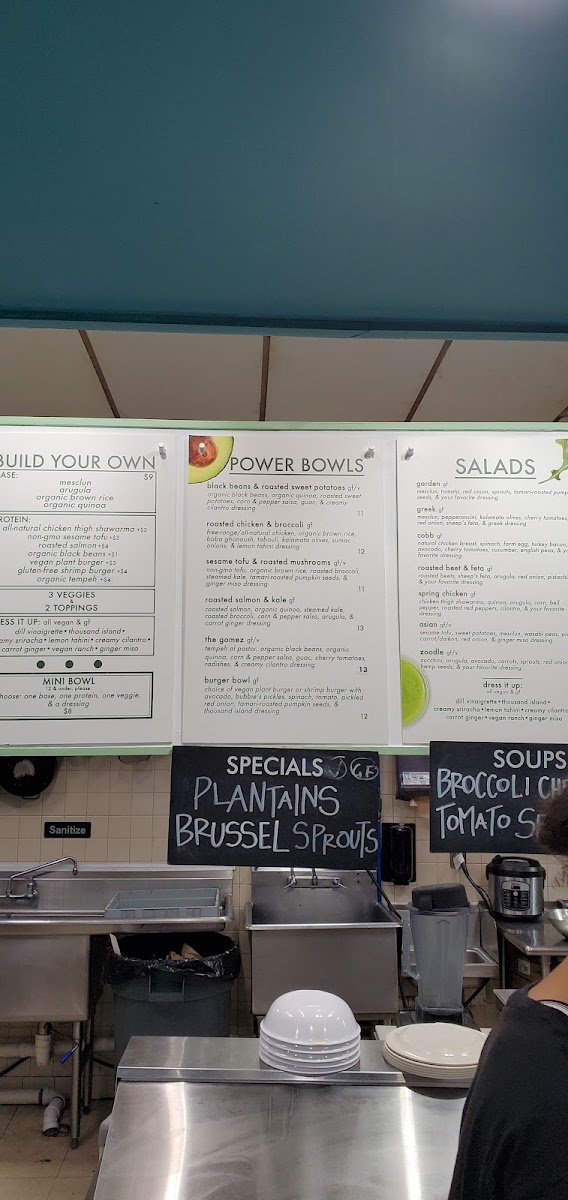 BUILD YOUR OWN
ASE: $9
mesclun
arugula
organic brown rice
organic quinoa
ROTEIN:
all-natural chicken thigh shawarma +$3
non-gmo sesame tofu +$3
roasted salmon +$4
organic black beans +$1
vegan plant burger +$3
gluten-free shrimp burger +$4
organic tempeh +$4
3 VEGGIES
&
2 TOPPINGS
ESS IT UP: all vegan & gf
dill vinaigrette • thousand island •
amy sriracha • lemon tahini • creamy cilantro •
carrot ginger • vegan ranch • ginger miso
MINI BOWL
12 & under, please
hoose: one base, one protein, one veggie,
& a dressing
$8
POWER BOWLS
black beans & roasted sweet potatoes gf/v
organic black beans, organic quinoa, roasted sweet
potatoes, corn & pepper salsa, guac, & creamy
cilantro dressing
11
roasted chicken & broccoli gf
free-range/all-natural chicken, organic brown rice,
baba ghanoush, tabouli, kalamata olives, sumac
onions, & lemon tahini dressing
12
sesame tofu & roasted mushrooms gf/v
non-gmo tofu, organic brown rice, roasted broccoli,
steamed kale, tamari-roasted pumpkin seeds, &
ginger miso dressing
11
roasted salmon & kale gf
roasted salmon, organic quinoa, steamed kale,
roasted broccoli, corn & pepper salsa, arugula, &
carrot ginger dressing
13
the gamez gf/v
tempeh al pastor, organic black beans, organic
quinoa, corn & pepper salsa, guac, cherry tomatoes,
radishes, & creamy cilantro dressing
13
burger bowl gf
choice of vegan plant burger or shrimp burger with
avocado, bubbie's pickles, spinach, tomato, pickled
red onion, tamari-roasted pumpkin seeds, &
thousand island dressing
12
SALADS
garden gf
mesclun, tomato, red onion, sprouts, tamari-roasted pump
seeds, & your favorite dressing
greek gf
mesclun, pepperoncini, kalamata olives, cherry tomatoes,
red onion, sheep's feta, & greek dressing
cobb gf
natural chicken breast, spinach, farm egg, turkey bacon,
avocado, cherry tomatoes, cucumber, english peas, & yo
favorite dressing
roasted beet & feta gf
roasted beets, sheep's feta, arugula, red onion, pistachi
& your favorite dressing
spring chicken gf
chicken thigh shawarma, quinoa, arugula, corn, bell
pepper, roasted red peppers, cilantro, &
favorite dressing
asian gf/v
sesame tofu, sweet potatoes, mesclun, wasabi peas, pi
carrot/daikon, red onion, & ginger miso dressing
zoodle gf/v
zucchini, arugula, avocado, carrots, sprouts, red onion
hemp seeds, & your favorite dressing
dress it up:
all vegan & gf
dill vinaigrette • thousand island •
creamy sriracha • lemon tahini • creamy cilantro
carrot ginger • vegan ranch • ginger miso
SPECIALS V GF
PLANTAINS
BRUSSEL SPROUTS
SOUPS
BROCCOLI CHE
TOMATO SE
Sanitize